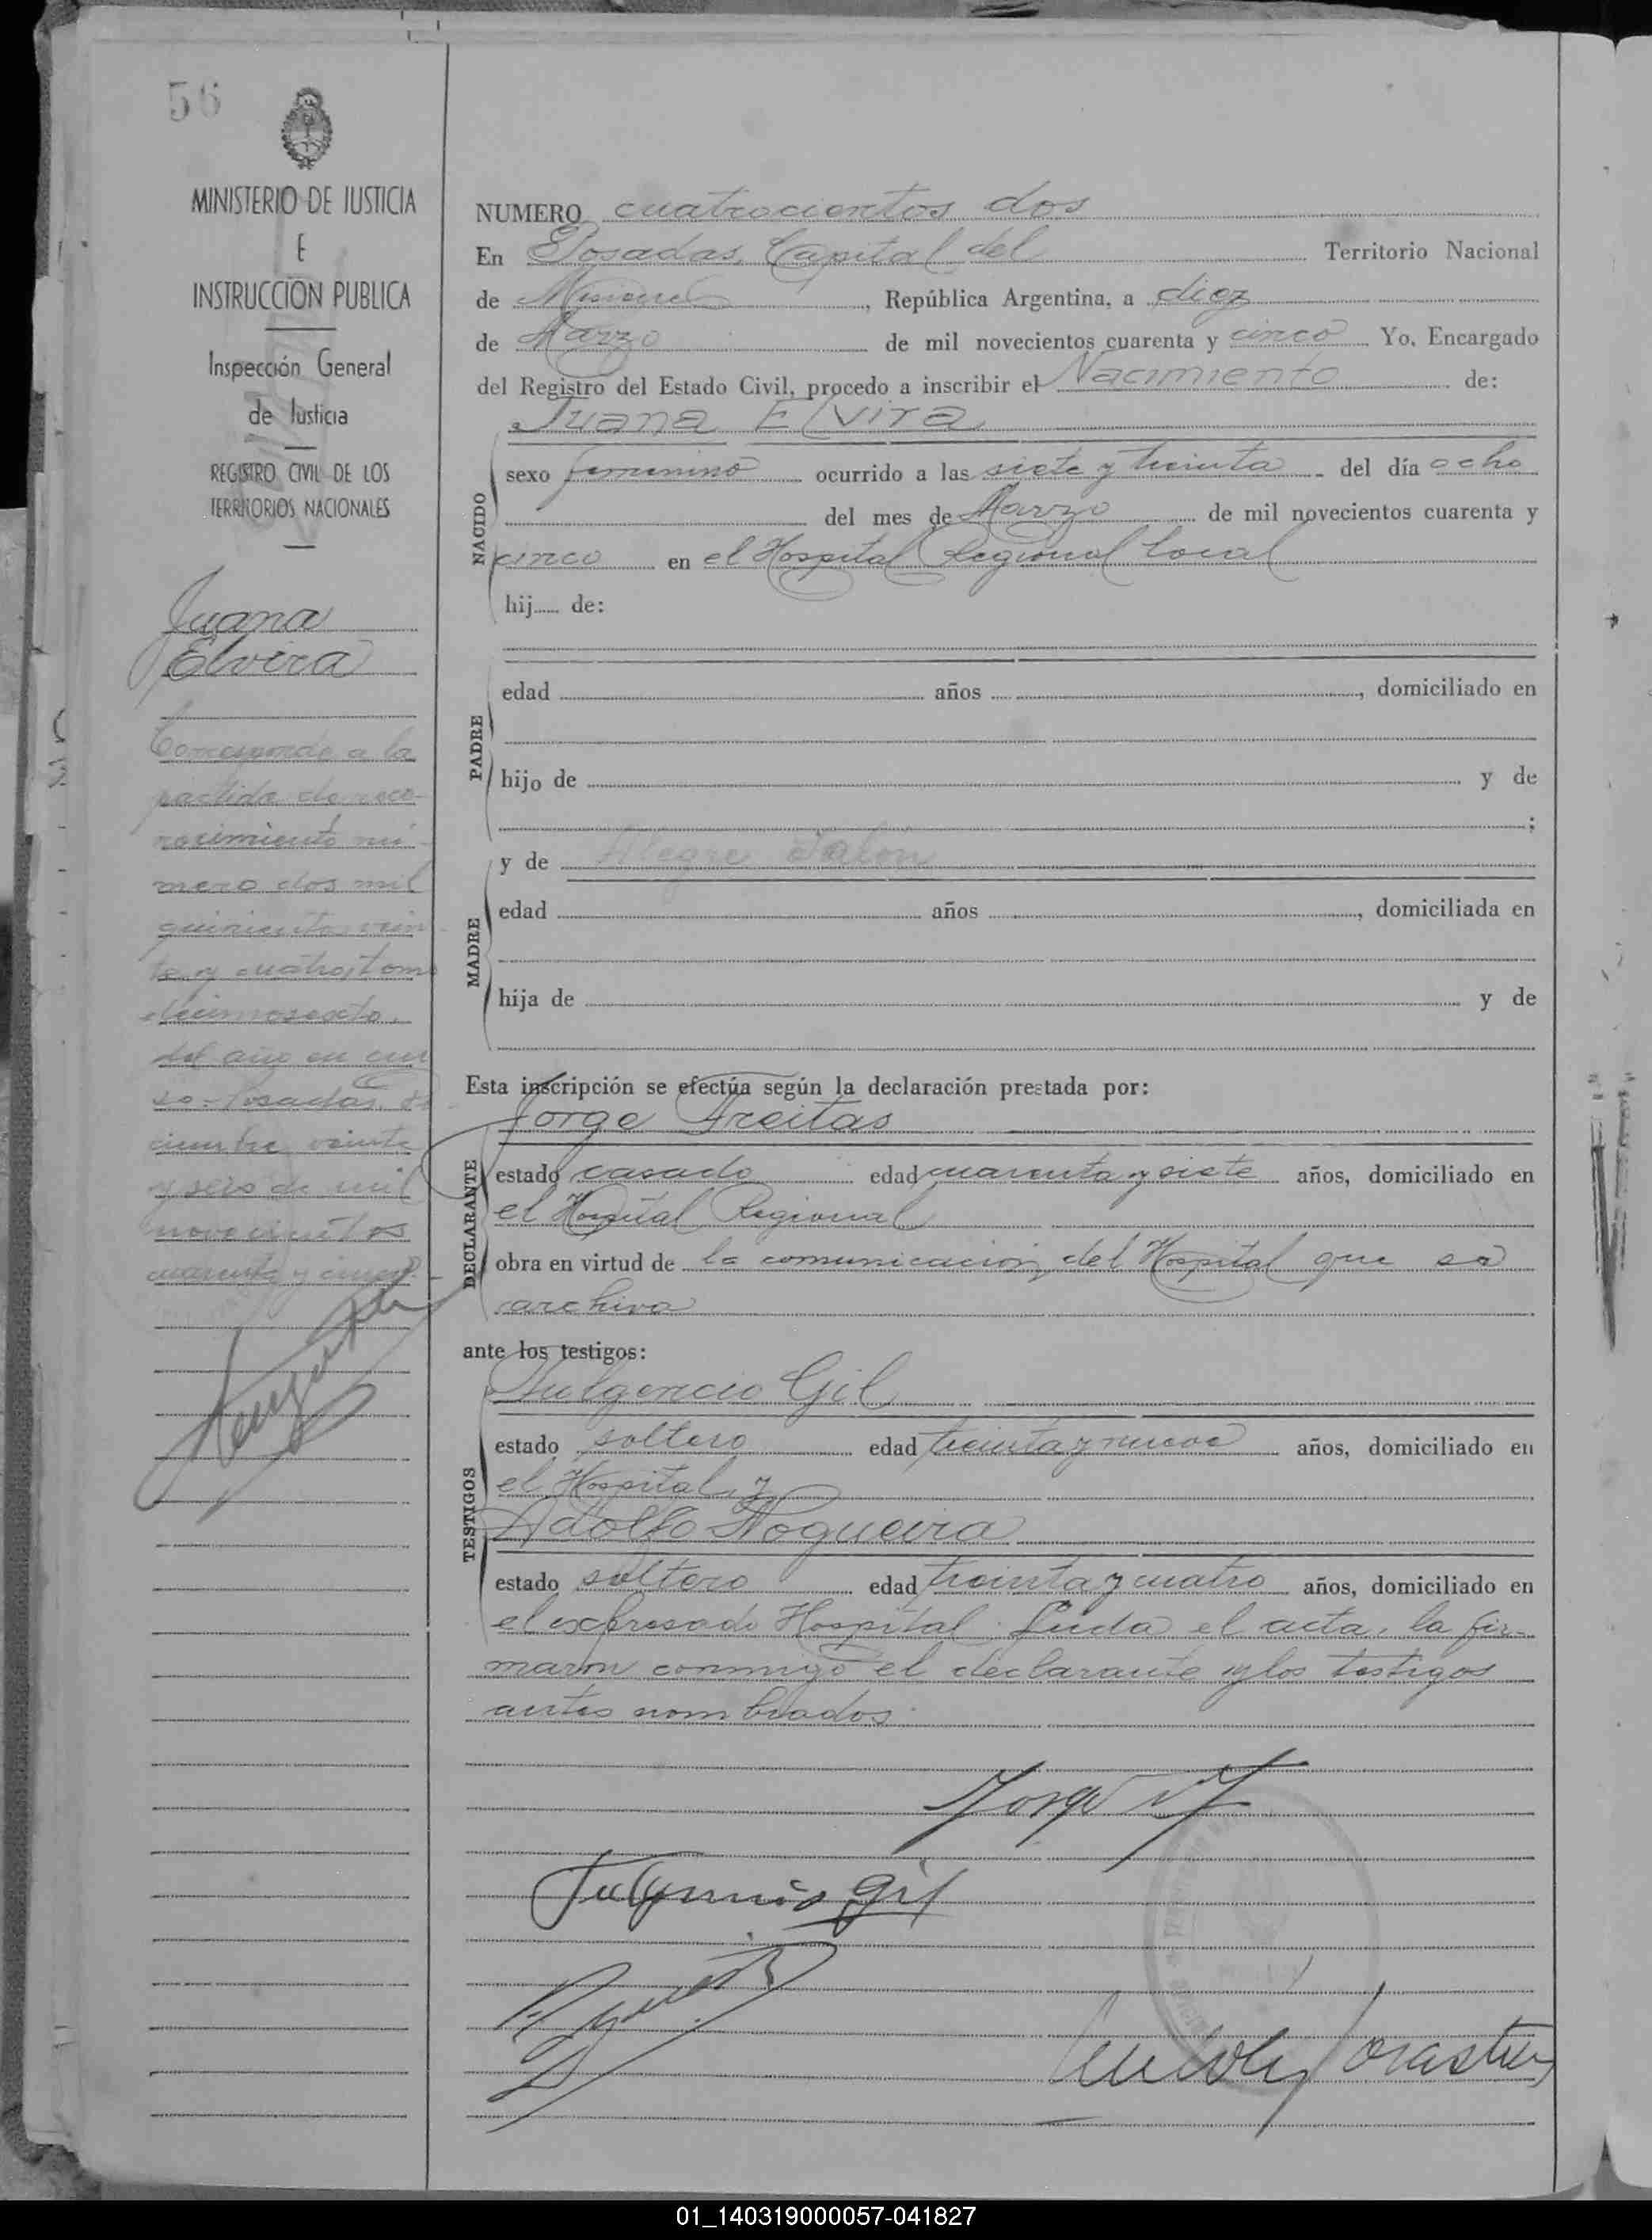 56
MINISTERIO DE JUSTICIA
E
INSTRUCCIÓN PUBLICA
Inspección General
de Justicia
REGISTRO CIVIL DE LOS
TERRITORIOS NACIONALES
Juana
Elvira
Corresponde a la
partida de reco-
nocimiento nú-
mero dos mil
quinientos vein
te y cuatro, tomo
decimosexto,
del año en cur
so. Posadas, di
ciembre veinte
y seis de mil
novecientos
cuarenta y cinco.-
NUMERO cuatrocientos dos
En Posadas, Capital del Territorio Nacional
de Misiones, República Argentina, a diez
de Marzo de mil novecientos cuarenta y cinco Yo, Encargado
del Registro del Estado Civil, procedo a inscribir el Nacimiento de:
Juana Elvira
NACIDO
sexo femenino ocurrido a las siete y treinta del día ocho
del mes de Marzo de mil novecientos cuarenta y
cinco en el Hospital Regional local
hij...... de:
PADRE
edad años , domiciliado en
hijo de y de
;
y de Alegre
MADRE
edad años , domiciliada en
hija de y de
Esta inscripción se efectúa según la declaración prestada por:
Jorge Freitas
DECLARANTE
estado casado edad cuarenta y siete años, domiciliado en
el Hospital Regional
obra en virtud de la comunicación del Hospital que se
archiva
ante los testigos:
Fulgencio Gil
TESTIGOS
estado soltero edad treinta y nueve años, domiciliado en
el Hospital y
Adolfo Nogueira
estado soltero edad treinta y cuatro años, domiciliado en
el expresado Hospital. Leída el acta, la fir-
maron conmigo el declarante y los testigos
antes nombrados.
Jorge
Fulgencio Gil
01_140319000057-041827